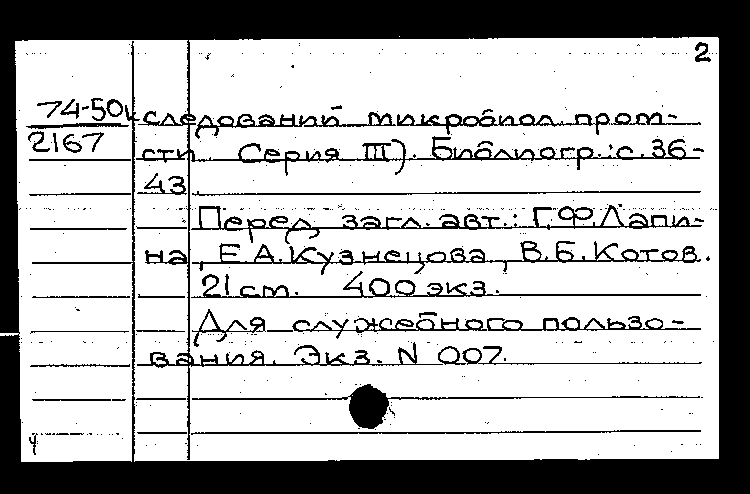 2
74-50к
2167
следований микробиол. пром-
сти. Серия III). Библиогр.: с. 36-
43.
Перед загл. авт.: Г.Ф.Лапи-
на, Е.А.Кузнецова, В.Б.Котов.
21 ст. 400 экз.
Для служебного пользо-
вания. Экз. N 007.
4